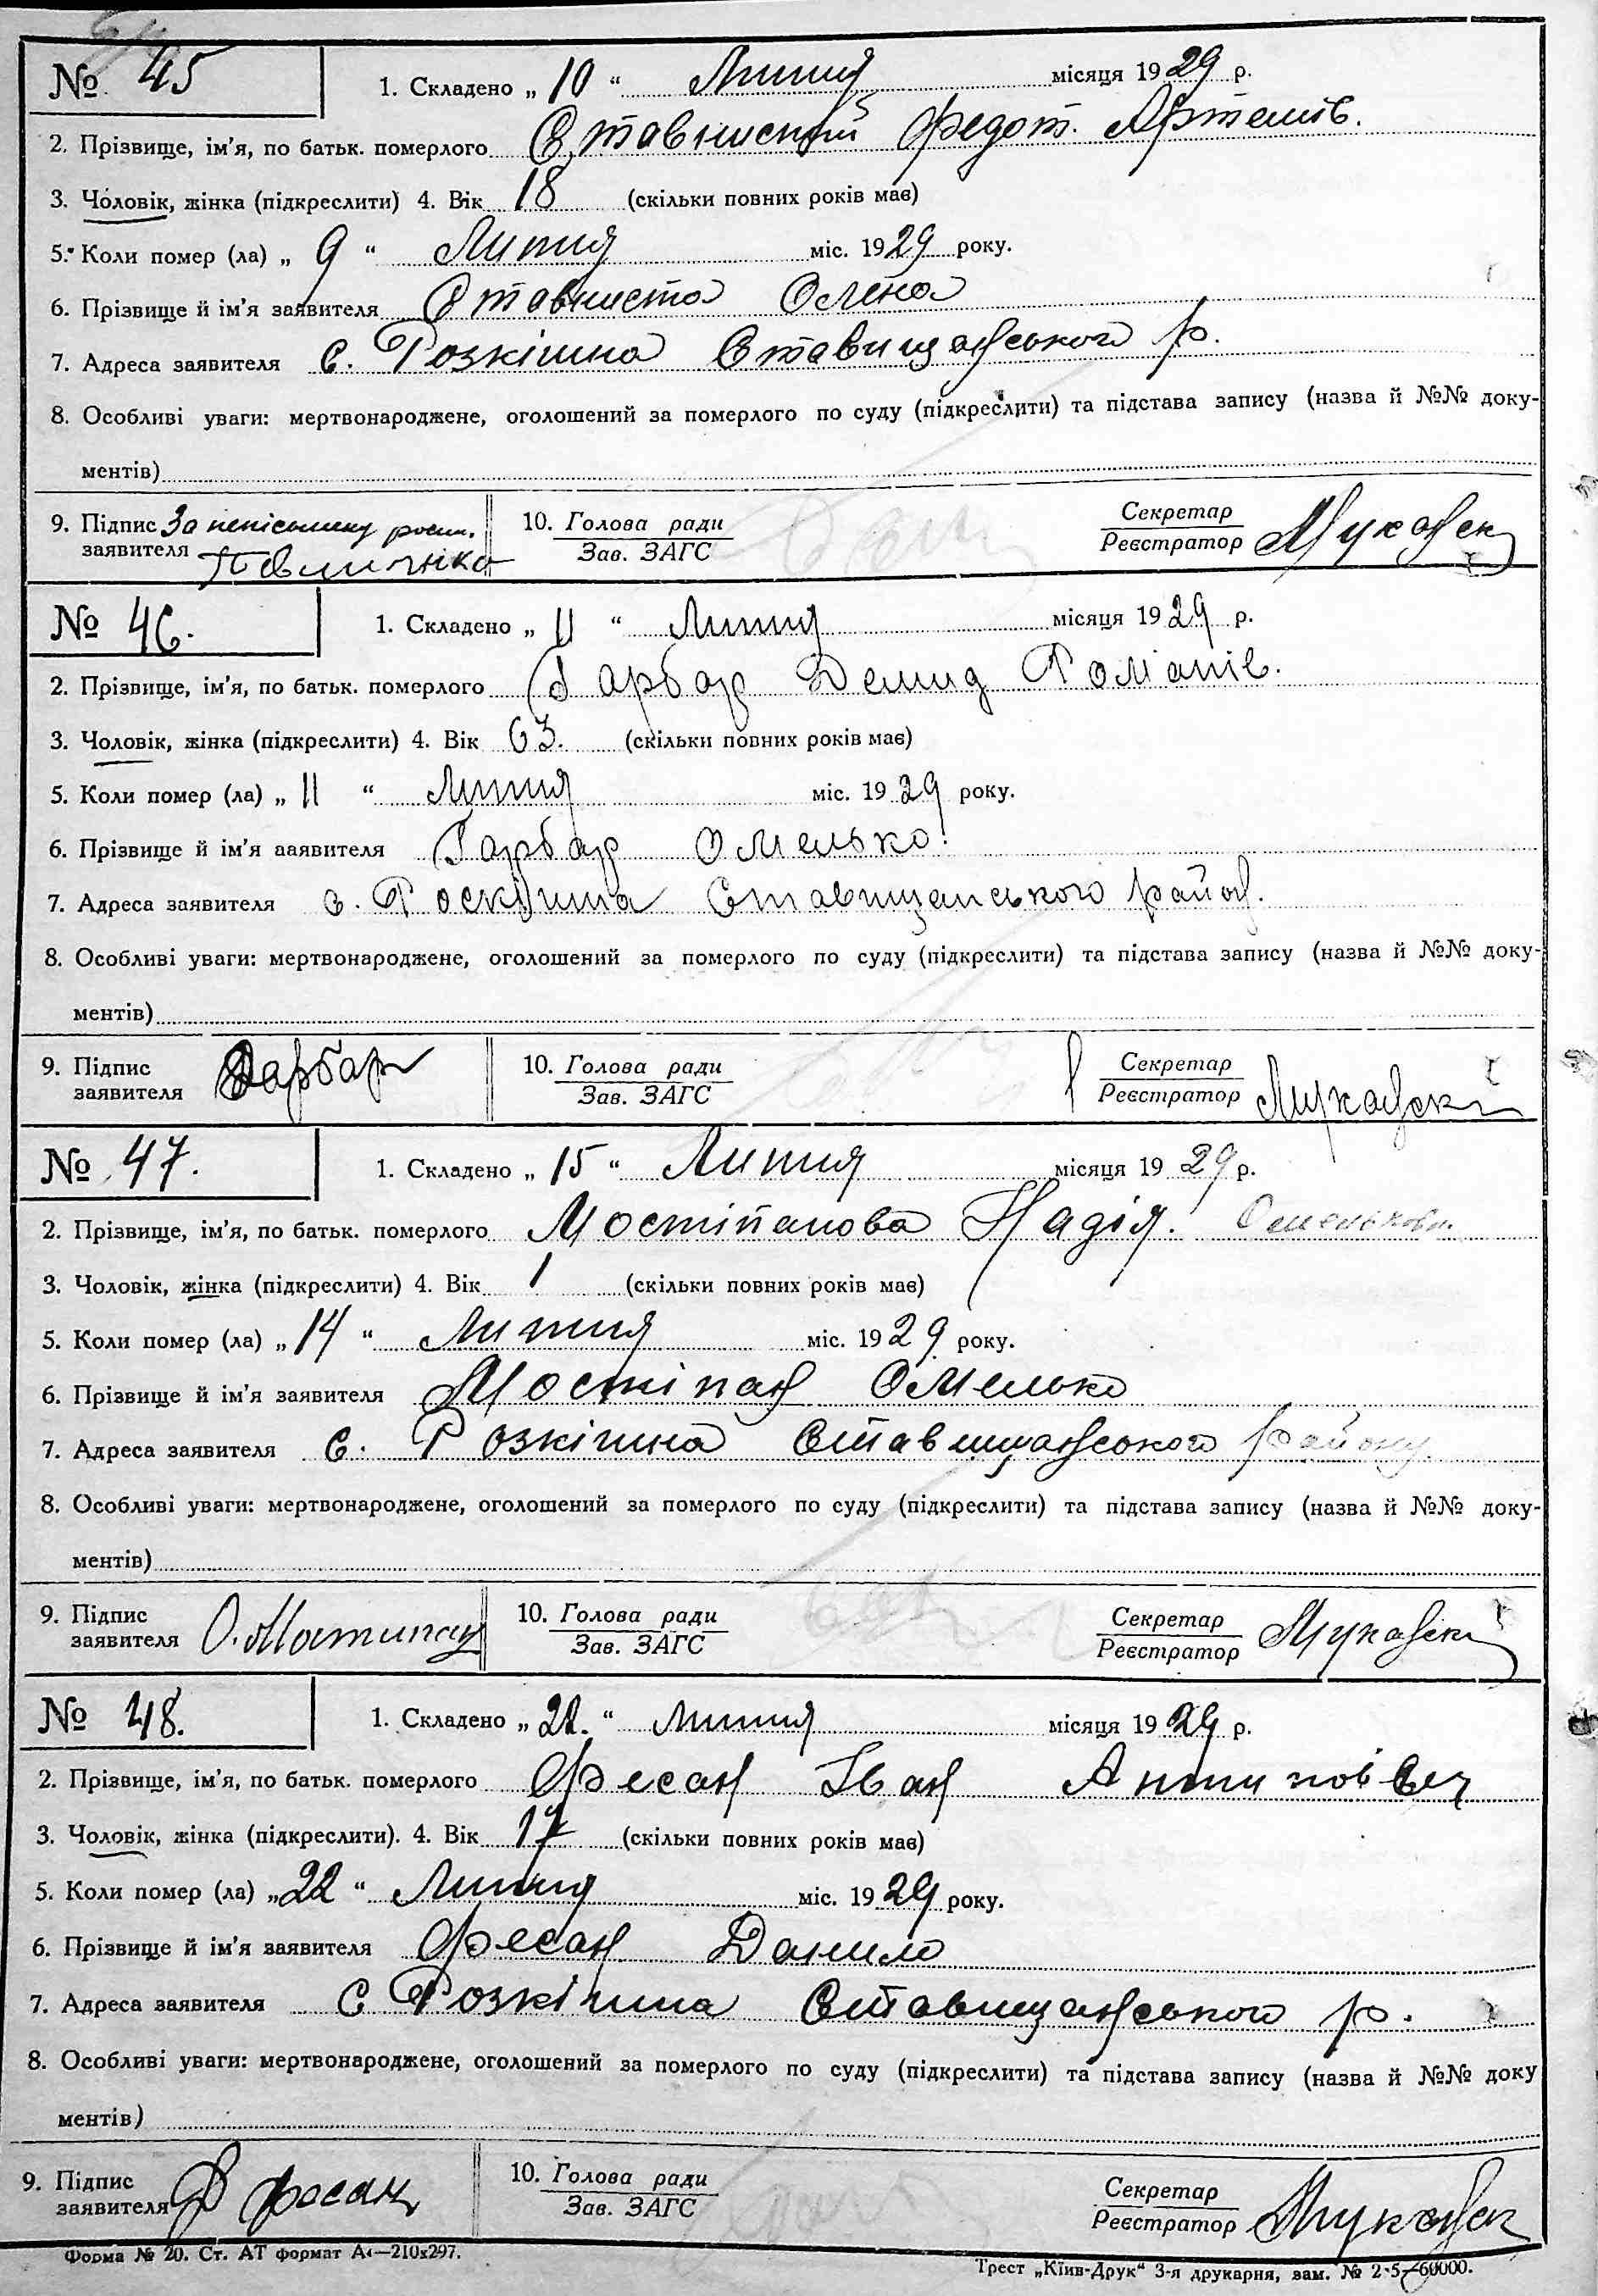 № 45 1. Складено „ 10 “ Липня місяця 1929 р.
2. Прізвище, ім'я, по батьк. померлого Ставниский Федот. Артемів.
3. Чоловік, жінка (підкреслити) 4. Вік 18 (скільки повних років має)
5. Коли помер (ла) „ 9 “ Липня міс. 1929 року.
6. Прізвище й ім'я заявителя Ставниста Олена
7. Адреса заявителя с. Розкішна Ставищанського р.
8. Особливі уваги: мертвонароджене, оголошений за померлого по суду (підкреслити) та підстава запису (назва й №№ доку-
ментів)
9. Підпис За неписьмену розп. 10. Голова ради Секретар
заявителя Зав. ЗАГС Реєстратор
№ 46. 1. Складено „ 11 “ Липня місяця 1929 р.
2. Прізвище, ім'я, по батьк. померлого Гарбар Демид Романів.
3. Чоловік, жінка (підкреслити) 4. Вік 63. (скільки повних років має)
5. Коли помер (ла) „ 11 “ Липня міс. 1929 року.
6. Прізвище й ім'я заявителя Гарбар Омелько.
7. Адреса заявителя с. Роскішна Ставищанського район.
8. Особливі уваги: мертвонароджене, оголошений за померлого по суду (підкреслити) та підстава запису (назва й №№ доку-
ментів)
9. Підпис Гарбар 10. Голова ради Секретар
заявителя Зав. ЗАГС Реєстратор
№ 47. 1. Складено „ 15 “ Липня місяця 1929 р.
2. Прізвище, ім'я, по батьк. померлого Мостіпанова Надія. Омельков.
3. Чоловік, жінка (підкреслити) 4. Вік 1 (скільки повних років має)
5. Коли помер (ла) „ 14 “ Липня міс. 1929 року.
6. Прізвище й ім'я заявителя Мостіпан Омелько
7. Адреса заявителя с. Розкішна Ставищанського району.
8. Особливі уваги: мертвонароджене, оголошений за померлого по суду (підкреслити) та підстава запису (назва й №№ доку-
ментів)
9. Підпис О. Мостипан 10. Голова ради Секретар
заявителя Зав. ЗАГС Реєстратор
№ 48. 1. Складено „ 22. “ Липня місяця 1929 р.
2. Прізвище, ім'я, по батьк. померлого Фесан Іван Антипович
3. Чоловік, жінка (підкреслити). 4. Вік 17 (скільки повних років має)
5. Коли помер (ла) „ 22 “ Липня міс. 1929 року.
6. Прізвище й ім'я заявителя Фесан Данило
7. Адреса заявителя с Розкішна Ставищанського р.
8. Особливі уваги: мертвонароджене, оголошений за померлого по суду (підкреслити) та підстава запису (назва й №№ доку
ментів)
9. Підпис Д Фесан 10. Голова ради Секретар
заявителя Зав. ЗАГС Реєстратор
Форма № 20. Ст. АТ формат А4—210х297. Трест „Київ-Друк“ 3-я друкарня, зам. № 2-5—60000.